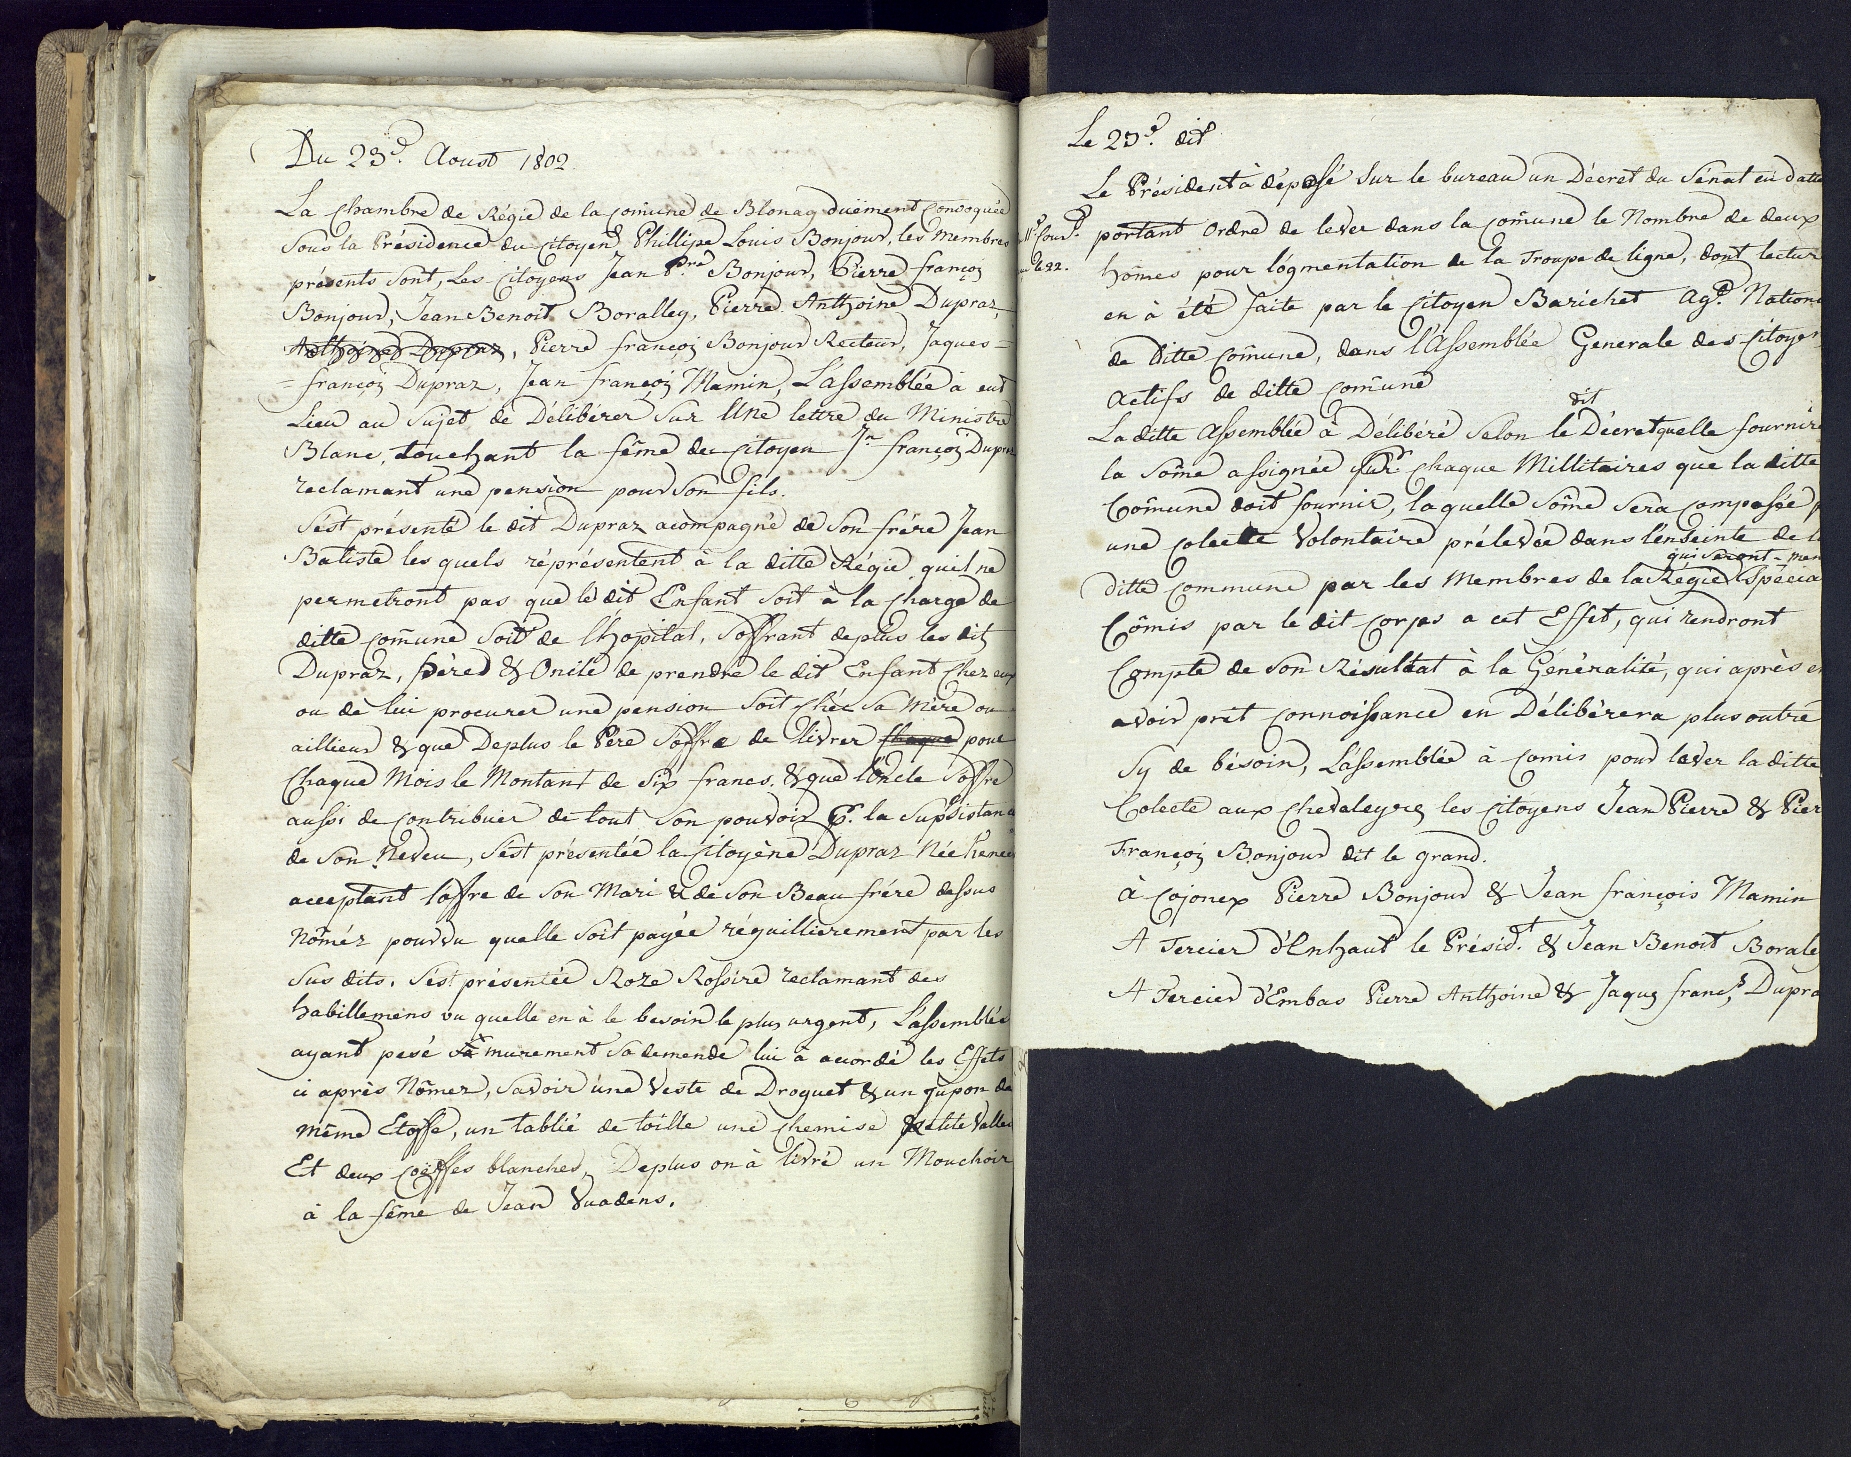 Du 23.e Aoust 1802.
La Chambre de Régie de la Com̃une de Blonay duëment Convoquée
Sous la Présidence du Citoyen Phillipe Louis Bonjour, les Membres
présents sont, Les Citoyens Jean P.re Bonjour, Pierre françois
Bonjour, Jean Benoit Boralley, Pierre Anthoine Dupraz,
Anthoine Dupraz, Pierre françois Bonjour Recteur, Jaques=
=françois Dupraz, Jean françois Mamin, L'assemblée à eut
Lieu au Sujet de Délibérer Sur Une lettre du Ministre
Blanc, touchant la fem̃e du Citoyen Jn françois Dupraz
reclamant une pension pour Son fils.
S'ést présenté le dit Dupraz acompagné de Son frére Jean
Batiste les quels réprésentent à la ditte Régie qu'il ne
permetront pas que le dit Enfant soit à la Charge de
ditte Com̃une Soit de l'hopital, S'offrant deplus les dits
Dupraz, Pére & Oncle de prendre le dit Enfant Chez eux
ou de lui procurer une pension Soit Chéz Sa Mére ou
aillieur & que Deplus le Pére S'offre de livrer pour
Chaque Mois le Montant de Six francs. & que l'oncle S'offre
aussi de Contribuer de tout Son pouvoir p.r la Supsistance
de Son Neveu, S'ést présentée la Citoyène Dupraz Née
acceptant l'offre de Son Mari & de Son Beau frére dessus
Nom̃éz pourvu quelle Soit payée réguillierement par les
Sus dits. S'ést présentée Roze Rossire reclamant des
habillemens vu quelle en à le besoin le plus urgent, L'assemblée
ayant pesé murement Sa demende lui à acordé les Effets
ci après Nom̃ez, Savoir une Veste de Droguet & un jupon de
même Etoffe, un tablié de toille une Chemise petite
Et deux Coëffes blanches, Deplus on à livré un Mouchoir
à la fem̃e de Jean Vuadens.
Le 23.e dit
Le Président à déposé Sur le bureau un Décret du Sénat en datte
11.e Cour.t portant Ordre de lever dans la Com̃une le Nombre de deux
hom̃es pour l'ógmentation de la Troupe de ligne, dont lectur
en à été faite par le Citoyen Barichet Ag.t Nation
de Ditte Com̃une, dans l'Assemblée Generale des Citoyen
Actifs de ditte Com̃une
dit
La ditte Assemblée à Délibéré Selon le Décret quelle fournir
la Som̃e assignée pour Chaque Millitaires que la ditte
Com̃une doit fournir, laquelle Som̃e Sera Composée p
une Colecte Volontaire prélevée dans l'enseinte de l
qui seront
ditte Commune par les Membres de la Régie Spécia
Com̃is par le dit Corps a cet Effet, qui rendront
Compte de Son Résultat à la Généralité, qui après e
avoir prit Connoissance en Délibérera plus outre
Sy de bésoin, L'assemblée à Comis pour lever la ditte
Colecte aux Chevaleyres les Citoyens Jean Pierre & Pier
François Bonjour dit le grand.
à Cojonex Pierre Bonjour & Jean françois Mamin
A Tercier d'Enhaut le Présid.t & Jean Benoit Borale
A Tercier d'Embas Pierre Anthoine & Jaques franç.s Dupra